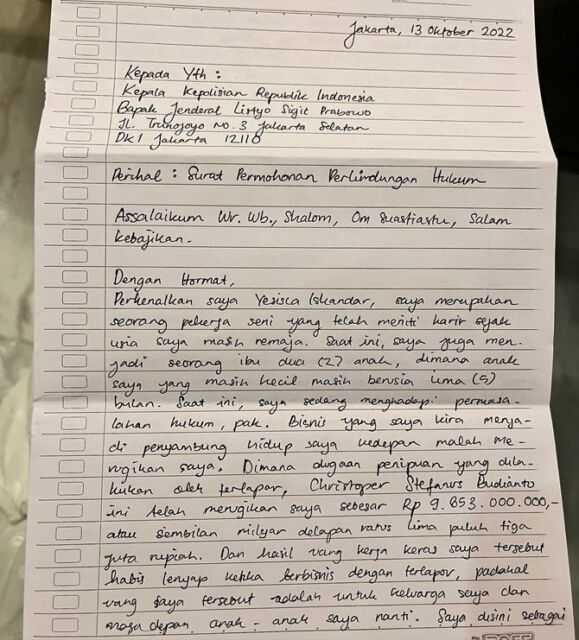 Jakarta, 13 Oktober 2022
Kepada Yth :
Kepala Kepolisian Republik Indonesia
Bapak Jenderal Listyo Sigit Prabowo
JL. Trunojoyo No. 3 Jakarta Selatan
DKI Jakarta 12110
Perihal : Surat Permohonan Perlindungan Hukum
Assalaikum Wr. Wb., Shalom, Om Suastiastu, Salam
kebajikan.
Dengan Hormat,
Perkenalkan saya Yesisca Iskandar, saya merupakan
seorang pekerja seni yang telah meniti karir sejak
usia saya masih remaja. Saat ini, saya juga men-
jadi seorang ibu dua (2) anak, dimana anak
saya yang masih kecil masih berusia lima (5)
bulan. Saat ini, saya sedang menghadapi permasa-
lahan hukum, pak. Bisnis yang saya kira menja-
di penyambung hidup saya kedepan malah me-
rugikan saya. Dimana dugaan penipuan yang dila-
kukan oleh terlapor, Christoper Stefanus Budianto
ini telah merugikan saya sebesar Rp 9.853.000.000,-
atau sembilan milyar delapan ratus lima puluh tiga
juta rupiah. Dan hasil uang kerja keras saya tersebut
habis lenyap ketika berbisnis dengan terlapor, padahal
uang saya tersebut adalah untuk keluarga saya dan
masa depan anak - anak saya nanti. Saya disini sebagai